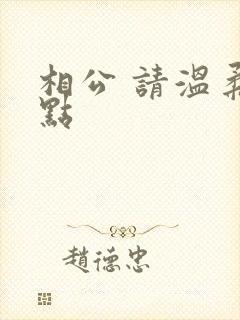 相公 請溫柔
點
趙德忠